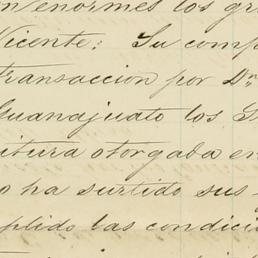 n enormes los gr
Vicente: Su comp
transaccion por Dn
Guanajuato los S
itura otorgada en
o ha surtido sus
plido las condicio